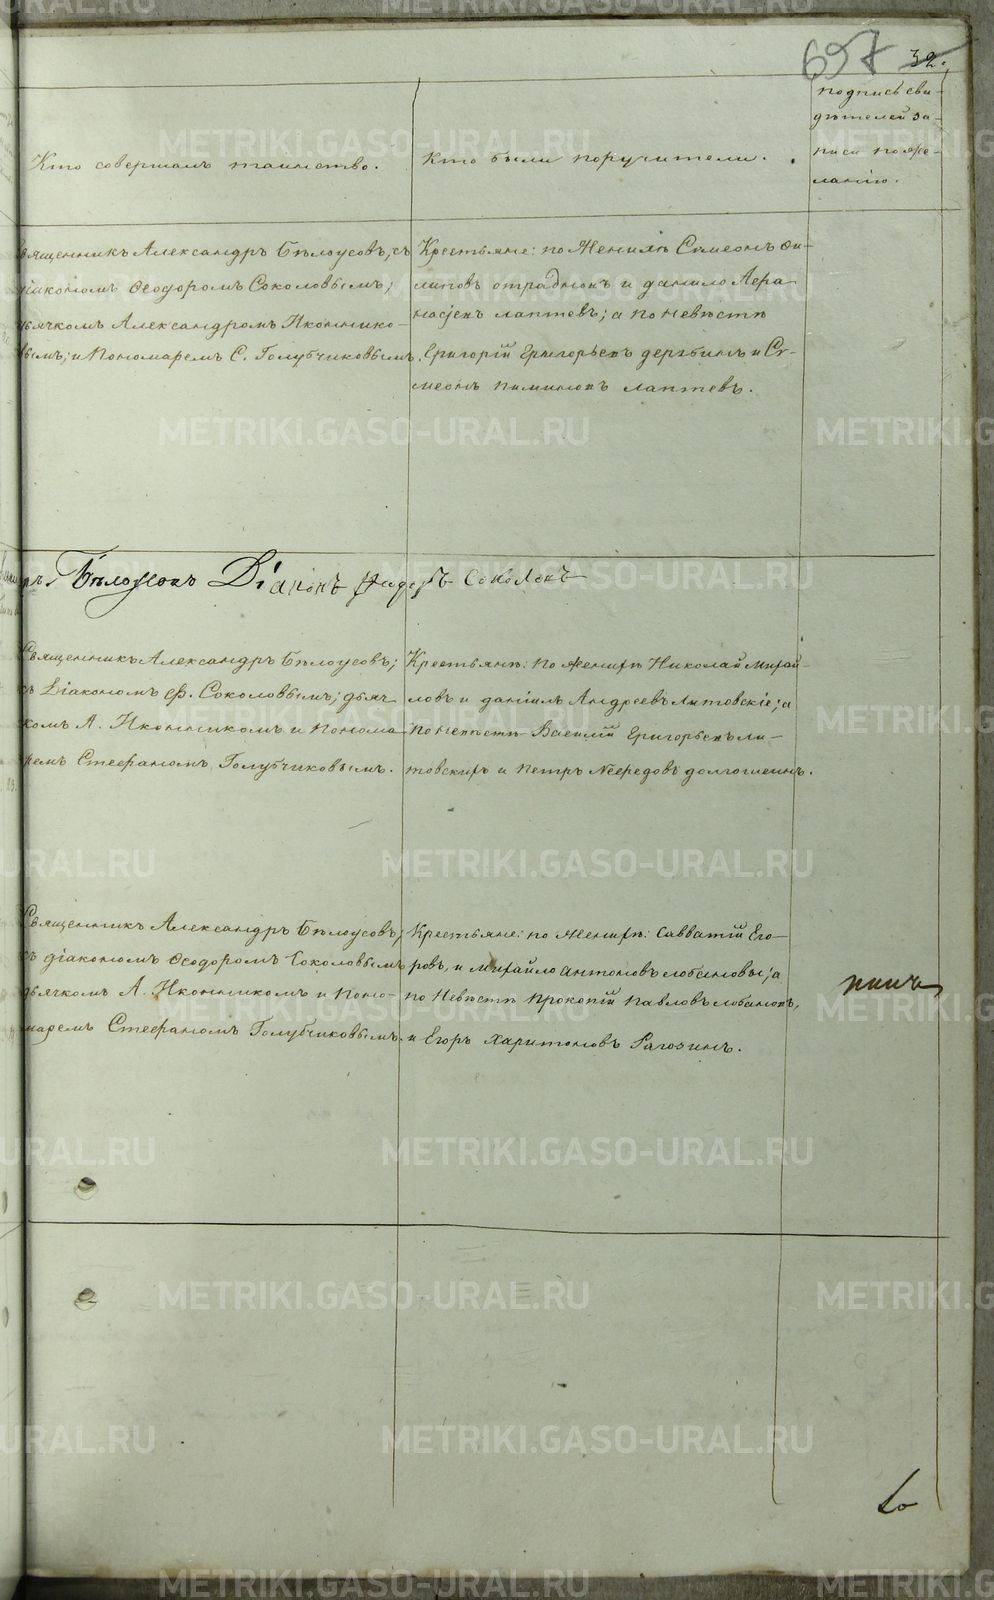 697 32.
Кто совершалъ таинство.
Кто были поручители.
подпись сви-
дѣтелей за-
писи по же-
ланію.
Священникъ Александръ Бѣлоусовъ, съ
діакономъ Ѳеодоромъ Соколовымъ;
дьячкомъ Александромъ Иконнико-
вымъ; и Пономаремъ С. Голубчиковымъ.
Крестьяне: по Женихѣ Симеонъ Фи-
липовъ отрадновъ и данило Аѳа-
насьевъ лаптевъ; а по невѣстѣ
Григорій Григорьевъ дерябинъ и Си-
меонъ Пиминовъ лаптевъ.
Бѣлоусовъ Діаконъ Ѳедоръ Соколовъ
Священникъ Александръ Бѣлоусовъ;
съ Діакономъ Ѳ. Соколовымъ; дьяч-
комъ А. Иконниковымъ и Понома-
ремъ Стефаномъ Голубчиковымъ.
Крестьяне: по женихѣ Николай Михай-
ловъ и даніилъ Андреевъ Литовскіе; а
по невѣстѣ Василій Григорьевъ Ли-
товскихъ и Петръ долгошеинъ.
Священникъ Александръ Бѣлоусовъ;
съ діакономъ Ѳеодоромъ Соколовымъ
дьячкомъ А. Иконниковымъ и Поно-
маремъ Стефаномъ Голубчиковымъ.
Крестьяне: по Женихѣ: Савватій Его-
ровъ, и михайло антоновъ лобановы; а
по Невѣстѣ Прокопій Павловъ лобановъ,
и Егоръ Харитоновъ Рагозинъ.
METRIKI.GASO-URAL.RU